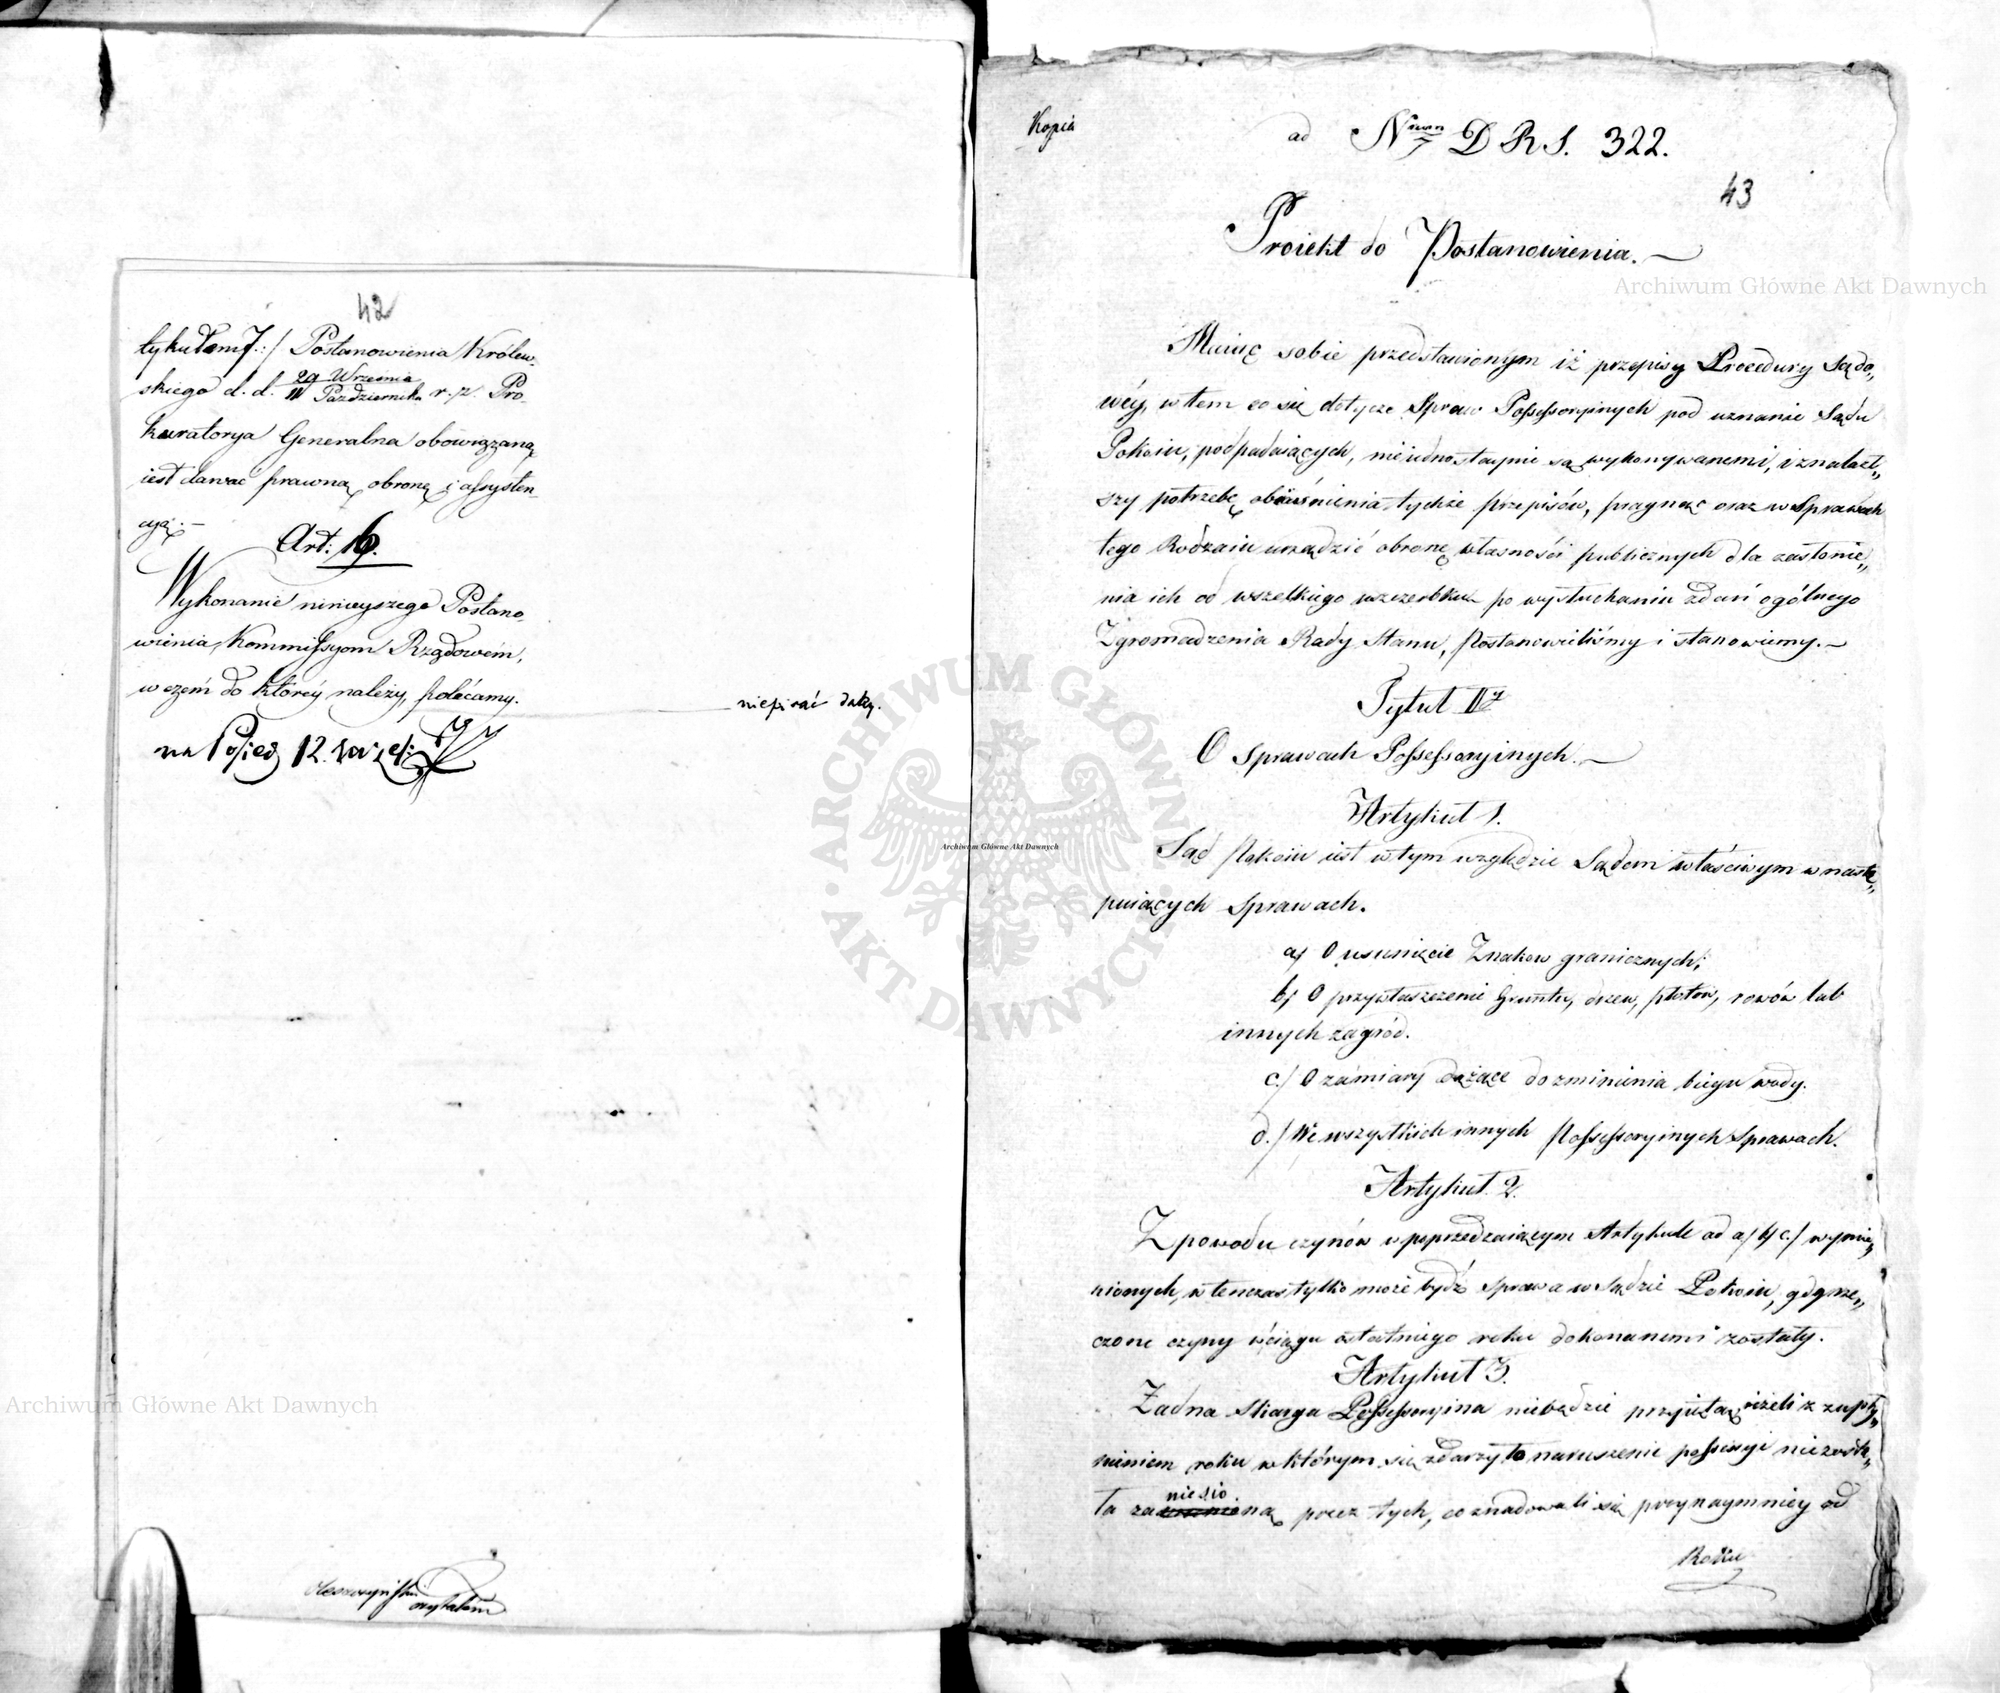 42
tykułem 7.:/ Postanowienia Królew-
skiego d. d. 29 Września
11 Październik r. z. Pro-
kuratorya Generalna obowiązaną
iest dawać prawną obronę i assysten-
cyą.-
Art: 16.
Wykonanie ninieyszego Postano-
wienia, Kommissyom Rządowém,
w czém do któréy należy, polécamy.
niepisać daty.
na Posied 12.
czytałem
Kopia
ad Nrum D R S. 322.
43
Proiekt do Postanowienia.
Maiąc sobie przedstawionym iż przepisy Procedury Sądo„
wéy, w tem co się dotycze Spraw Possessoryinych pod uznanie Sądu
Pokoiu, podpadaiących, nieiednostaynie są wykonywanemi, i znalazł„
szy potrzebę obiaśnienia tychże przepisów, pragnąc oraz w Sprawach
tego Rodzaiu urządzić obronę własności publicznych dla zasłonie„
nia ich od wszelkiego uszczerbku po wysłuchaniu zdań ogólnego
Zgromadzenia Rady Stanu, Postanowiliśmy i stanowiemy.-
Tytuł IIgi
O Sprawach Possessoryinych.
Artykuł 1.
Sąd Pokoiu iest w tym względzie Sądem właściwym w nastę„
puiących Sprawach.
a/ O usunięcie Znaków granicznych;
b/ O przywłaszczenie Gruntu, drzew, płotów, rowów lub
innych zagród.
c./ O zamiary dążące do zmienienia biegu wody.
d./ We wszystkich innych Possessoryinych Sprawach.
Artykuł 2.
Z powodu czynów w poprzedzaiącym Artykule ad a/ b/ c./ wymie„
nionych, w tenczas tylko może bydź Sprawa w Sądzie Pokoiu, gdy rze„
czone czyny w ciągu ostatniego roku dokonanemi zostały.
Artykuł 3.
Żadna Skarga Possessoryina niebędzie przyiętą, ieżeli z upły„
nieniem roku w którym się zdarzyło naruszenie possessyi niezosta„
ła zaniesioną przez tych, co znaydowali się przynaymniey od
Roku
Archiwum Główne Akt Dawnych
Archiwum Główne Akt Dawnych
Archiwum Główne Akt Dawnych
ARCHIWUM GŁÓWNE AKT DAWNYCH